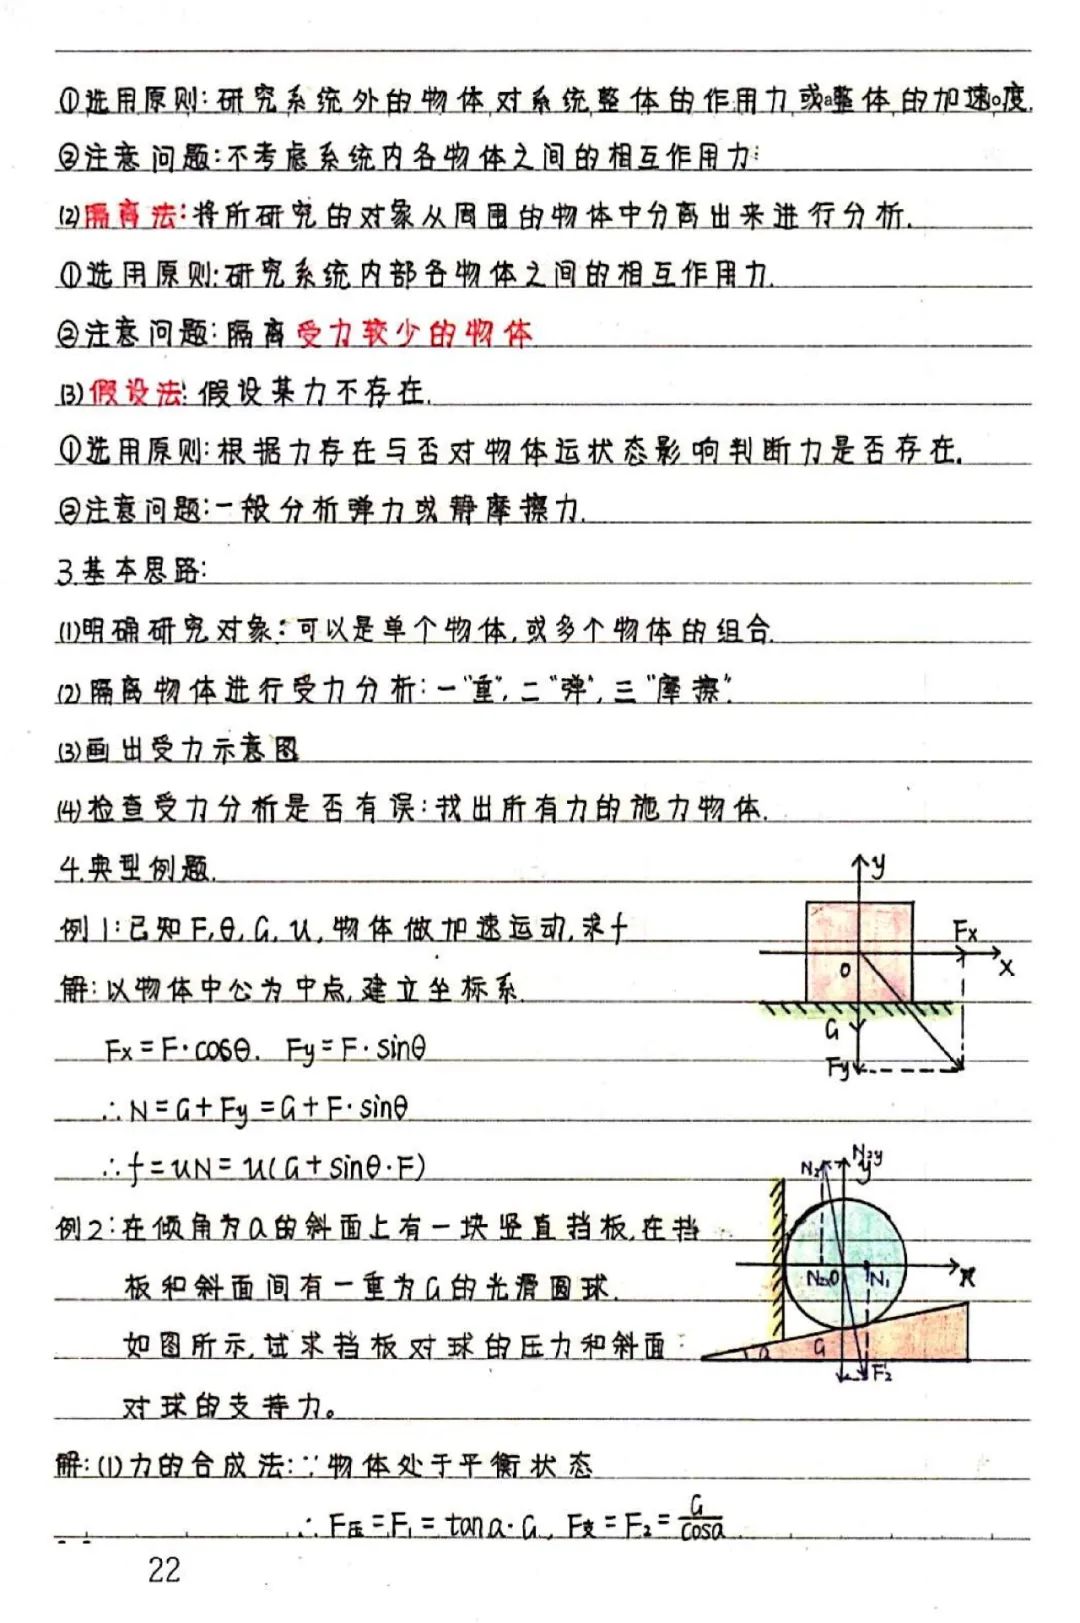 ①选用原则:研究系统外的物体对系统整体的作用力或整体的加速度.
②注意问题:不考虑系统内各物体之间的相互作用力.
(2)隔离法:将所研究的对象从周围的物体中分离出来进行分析.
①选用原则:研究系统内部各物体之间的相互作用力.
②注意问题:隔离受力较少的物体
(3)假设法:假设某力不存在.
①选用原则:根据力存在与否对物体运状态影响判断力是否存在.
②注意问题:一般分析弹力或静摩擦力.
3.基本思路:
(1)明确研究对象:可以是单个物体,或多个物体的组合.
(2)隔离物体进行受力分析:一"重",二"弹",三"摩擦".
(3)画出受力示意图
(4)检查受力分析是否有误:找出所有力的施力物体.
4.典型例题.
y
例1:已知F,θ,G,u,物体做加速运动,求f
Fx
O
x
解:以物体中心为中点,建立坐标系.
G
Fx=F·cosθ. Fy=F·sinθ
Fy
∴N=G+Fy=G+F·sinθ
∴f=uN=u(G+sinθ·F)
N₂ N₂y
y
例2:在倾角为α的斜面上有一块竖直挡板,在挡
板和斜面间有一重为G的光滑圆球.
N₂x O N₁ x
如图所示,试求挡板对球的压力和斜面
α G
F₂
对球的支持力。
解:(1)力的合成法:∵物体处于平衡状态
∴F压=F₁=tanα·G, F支=F₂=G/cosα
22